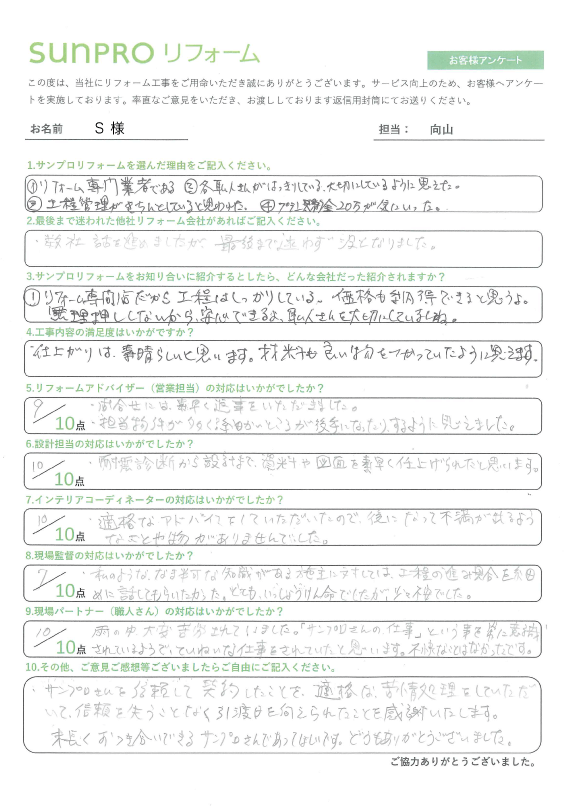 SUNPRO リフォーム
お客様アンケート
この度は、当社にリフォーム工事をご用命いただき誠にありがとうございます。サービス向上のため、お客様へアンケー
トを実施しております。率直なご意見をいただき、お渡ししております返信用封筒にてお送りください。
お名前 S 様 担当： 向山
1.サンプロリフォームを選んだ理由をご記入ください。
①リフォーム専門業者である ②各職人さんがはっきりしている、大切にしているように思えた。
③工程管理がきちんとしていると思われた。 ④プラン 20万が気にいった。
2.最後まで迷われた他社リフォーム会社があればご記入ください。
・数社 話を進めましたが、最後まで迷わず 決となりました。
3.サンプロリフォームをお知り合いに紹介するとしたら、どんな会社だった紹介されますか？
①リフォーム専門店だから 工程はしっかりしている。価格も納得できると思うよ。
無理押ししないから、安心できるよ、職人さんを大切にしていましたね。
4.工事内容の満足度はいかがですか？
仕上がりは、素晴らしいと思います。材料も良い物をつかっていたように見えます。
5.リフォームアドバイザー（営業担当）の対応はいかがでしたか？
9／10点
・問合せには、素早く返事をいただきました。
・担当物件が 後手になったりするように見えました。
6.設計担当の対応はいかがでしたか？
10／10点
・耐震診断から設計まで、資料や図面を素早く仕上げられたと思います。
7.インテリアコーディネーターの対応はいかがでしたか？
10／10点
・適格なアドバイスをしていただいたので、後になって不満が出るよう
なことや物がありませんでした。
8.現場監督の対応はいかがでしたか？
7／10点
・私のような、なま半可な知識がある施主に対しては、工程の進み具合を細
めに話してもらいたかった。とても、いっしょうけん命でしたが、
9.現場パートナー（職人さん）の対応はいかがでしたか？
10／10点
雨の中 大変苦労されていました。「サンプロさんの仕事」という事を常に意識
されているようで、ていねいな仕事をされていたと思います。不愉なことはなかったです。
10.その他、ご意見ご感想等ございましたらご自由にご記入ください。
・サンプロさんを信頼して契約したことを、適格な、苦情処理をしていただ
いて、信頼を失うことなく引渡日を向えられたことを感謝いたします。
末長くおつき合いできるサンプロさんであってほしいです。どうもありがとうございました。
ご協力ありがとうございました。